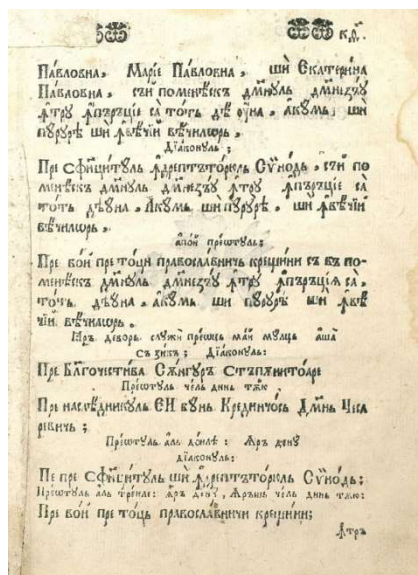 кѳ.
Павловна, Марїе Павловна, ши Екатерина
Павловна, съи поменѣскъ дм҃нꙋль дм҃неꙁѣꙋ
ꙟтрꙋ ꙟпърѫцїе са тотъ дѣ ꙋна, акꙋмь, ши
пꙋрꙋрѣ ши ꙟвѣчїй вѣчилѡрь.
Дїаконꙋль:
Пре Сфинцитꙋль ꙟдрептътorюль Сѵнодъ, съи по
менѣскъ дм҃нꙋль дм҃неꙁѣꙋ ꙟтрꙋ ꙟпърѫцїе са
тотъ дѣꙋна, Акꙋмь шипꙋрꙋрѣ, ши ꙟвѣчїи
вѣчилѡрь.
апой прѣѡтꙋль:
Пре вой пре тоци православничь крещинїи съ въ по-
менѣскъ дм҃нꙋль дм҃неꙁѣꙋ ꙟтрꙋ ꙟпърѫцїѧ са,
тотъ дѣꙋна, акꙋмь ши пꙋрꙋрѣ ши ꙟвѣ
чїй вѣчилѡрь.
Ꙗръ деворь слꙋжи прѣѡць май мꙋлць аша
съ ꙁикъ: Дїаконꙋль:
Пре Бл҃гочестива Сѫнгꙋръ Стъпѫнитоаре
Прѣѡтꙋль чель динь тѫю
Пре наслѣдникꙋль ЕИ бꙋнь Крединчось Дм҃нь Цеса
ревичь:
Прѣѡтꙋль аль доиле: Ꙗръ денꙋ
дїаконꙋль:
Пе пре Сфинцитꙋль ши ꙟдрептъторюль Сѵнодъ:
Прѣѡтꙋль аль треиле: ꙗръ денꙋ, ꙗръшь чель динь тѫю:
Пре вой пре тоць православничи крещинїи:
ꙟтрꙋ